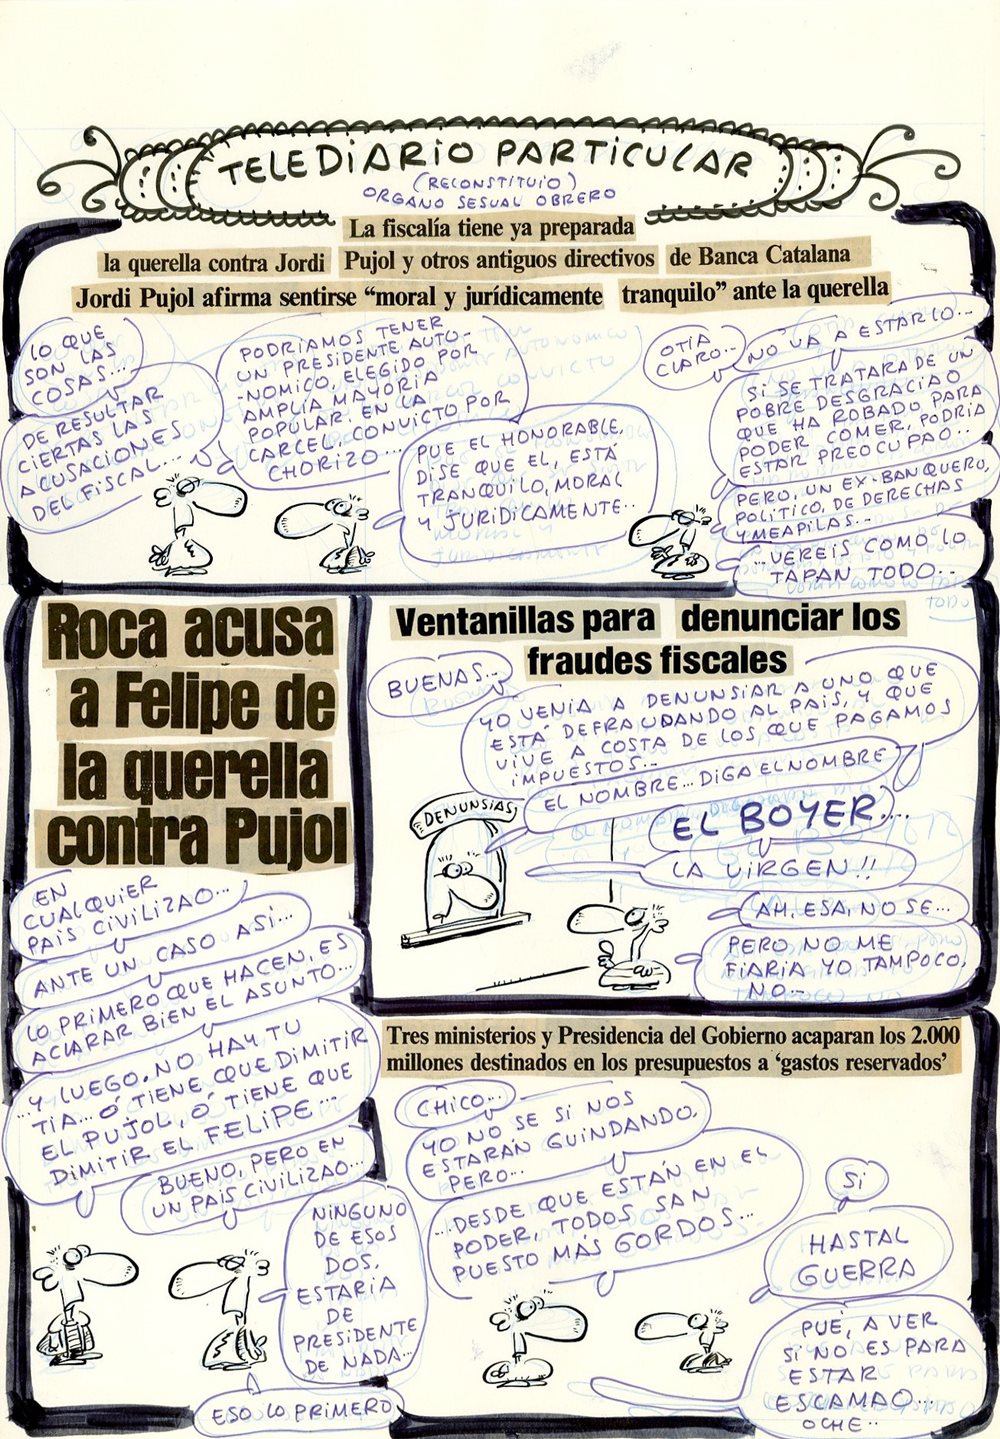 TELEDIARIO PARTICULAR
(RECONSTITUIO)
ORGANO SESUAL OBRERO
La fiscalía tiene ya preparada
la querella contra Jordi Pujol y otros antiguos directivos de Banca Catalana
Jordi Pujol afirma sentirse “moral y jurídicamente tranquilo” ante la querella
LO QUE
SON LAS
COSAS...
DE RESULTAR
CIERTAS LAS
ACUSACIONES
DEL FISCAL...
PODRÍAMOS TENER
UN PRESIDENTE AUTO-
-NOMICO, ELEGIDO POR
AMPLIA MAYORIA
POPULAR, EN LA
CARCEL, CONVICTO POR
CHORIZO...
PUE EL HONORABLE,
DISE QUE EL, ESTÁ
TRANQUILO, MORAL
Y JURIDICAMENTE..
OTIA
CLARO...
NO VA A ESTARLO...
SI SE TRATARA DE UN
POBRE DESGRACIAO
QUE HA ROBADO PARA
PODER COMER, PODRIA
ESTAR PREOCUPAO..
PERO, UN EX-BANQUERO,
POLITICO, DE DERECHAS
Y MEAPILAS...
...VEREIS COMO LO
TAPAN TODO..
Roca acusa
a Felipe de
la querella
contra Pujol
EN
CUALQUIER
PAIS CIVILIZAO...
ANTE UN CASO ASI...
LO PRIMERO QUE HACEN, ES
ACLARAR BIEN EL ASUNTO...
...Y LUEGO, NO HAY TU
TIA... Ó TIENE QUE DIMITIR
EL PUJOL, Ó TIENE QUE
DIMITIR EL FELIPE...
BUENO, PERO EN
UN PAIS CIVILIZAO...
NINGUNO
DE ESOS
DOS,
ESTARIA
DE
PRESIDENTE
DE NADA...
ESO LO PRIMERO
Ventanillas para denunciar los
fraudes fiscales
BUENAS...
YO VENIA A DENUNSIAR A UNO QUE
ESTÁ DEFRAUDANDO AL PAIS, Y QUE
VIVE A COSTA DE LOS QUE PAGAMOS
IMPUESTOS...
EL NOMBRE... DIGA EL NOMBRE
DENUNSIAS
EL BOYER....
LA VIRGEN!!
AH, ESA, NO SE...
PERO NO ME
FIARIA YO TAMPOCO,
NO..
Tres ministerios y Presidencia del Gobierno acaparan los 2.000
millones destinados en los presupuestos a ‘gastos reservados’
CHICO...
YO NO SE SI NOS
ESTARÁN GUINDANDO,
PERO...
...DESDE QUE ESTÁN EN EL
PODER, TODOS SAN
PUESTO MÁS GORDOS...
SI
HASTAL
GUERRA
PUÉ, A VER
SI NO ES PARA
ESTAR
ESCAMAO...
OCHE..